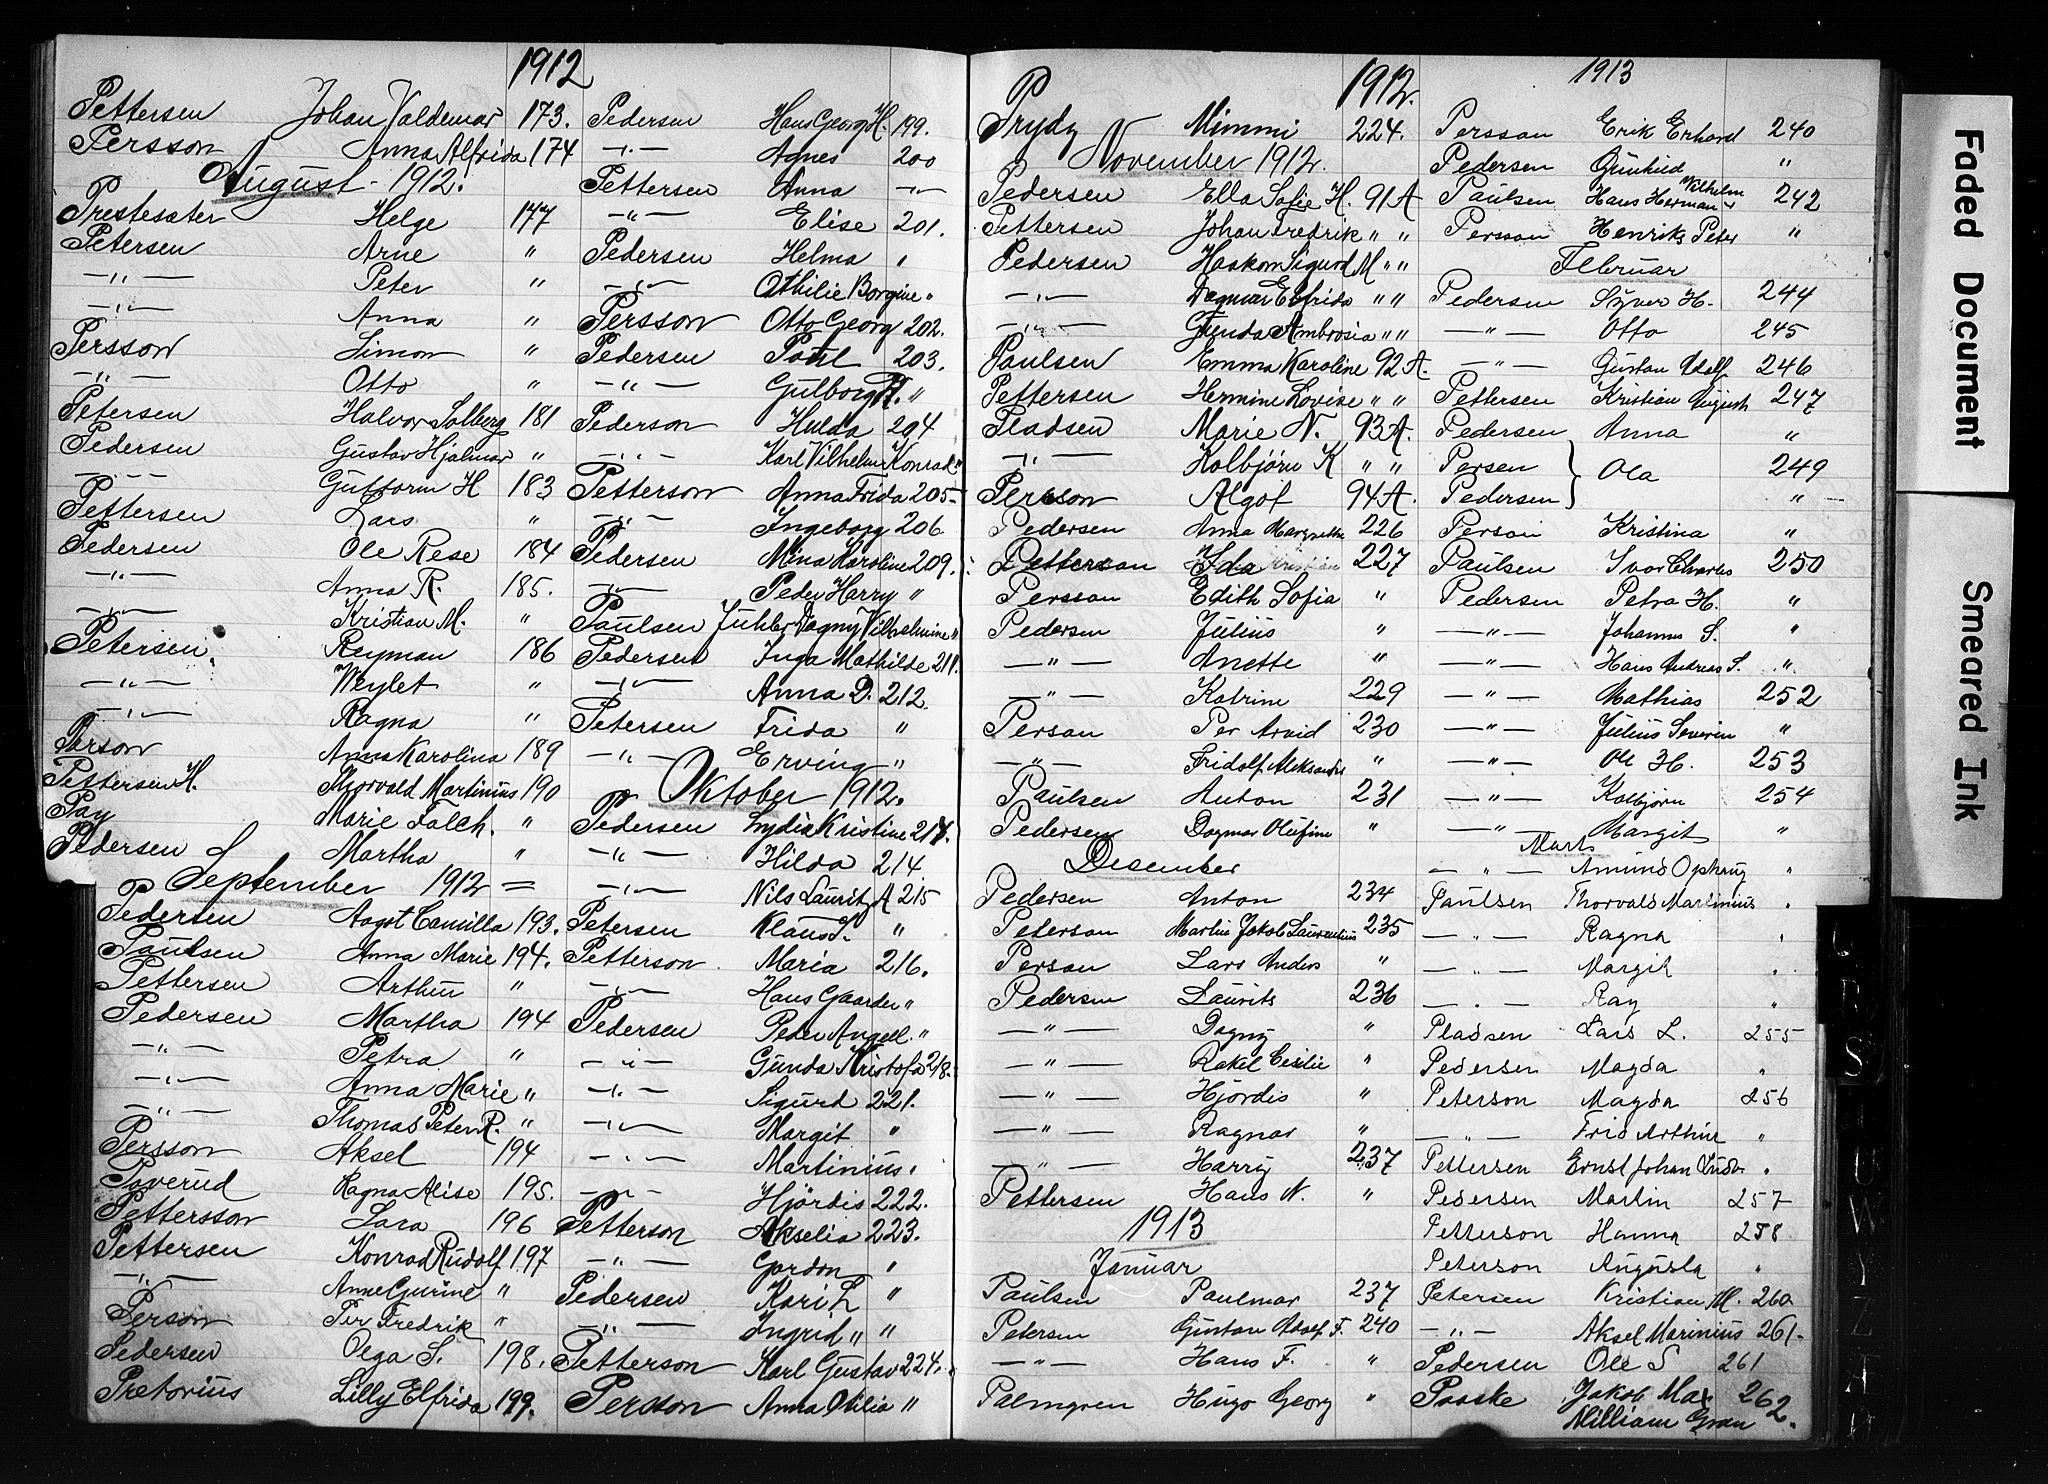 1912
Pettersen Johan Valdemar 173.
Persson Anna Alfrida 174
August 1912.
Prestesæter Helge 177
Petersen Arne "
—"— Peter "
—"— Anna "
Persson Simon "
—"— Otto "
Petersen Halvor Solberg 181
Pedersen Gustav Hjalmar "
—"— Guttorm H 183
Pettersen Lars "
Pedersen Ole Rese 184
—"— Anna R. 185.
—"— Kristian M. "
Petersen Reyman 186
—"— Weylet "
—"— Ragna "
Person Anna Karolina 189
Pettersen H. Thorvald Martinius 190
Pay Marie Falch. "
Pedersen Martha "
September 1912 =
Pedersen Aagot Camilla 193.
Paulsen Anna Marie 194.
Pettersen Arthur "
Pedersen Martha 194
—"— Petra "
—"— Anna Marie "
—"— Thomas Peter R. "
Persson Aksel 194
Poverud Ragna Alise 195.
Pettersson Sara 196
Pettersen Konrad Rudolf 197
—"— Anne Gurine "
Person Per Fredrik "
Pedersen Olga S. 198.
Pretorius Lilly Elfrida 199.
Pedersen Hans Georg H. 199.
—"— Agnes 200
Pettersen Anna —"—
—"— Elise 201.
Pedersen Helma "
—"— Othilie Borgine "
Persson Otto Georg 202.
Pedersen Paul 203.
—"— Gulborg H. "
Pederson Hulda 204
—"— Karl Vilhelm Konrad "
Petterson Anna Frida 205
—"— Ingeborg 206
Pedersen Mina Karoline 209.
—"— Peder Harry "
Paulsen Juhler Dagny Vilhelmine "
Pedersen Inga Mathilde 211.
—"— Anna D. 212.
Petersen Frida "
—"— Erving "
Oktober 1912.
Pedersen Lydia Kristine 214.
—"— Hilda 214
—"— Nils Lauritz A 215
Petersen Klaus S. "
Petterson Maria 216.
—"— Hans Gaarder "
Pedersen Peder Angell. "
—"— Gunda Kristofa 218.
—"— Sigurd 221.
—"— Margit "
—"— Martinius "
—"— Hjördis 222.
Petterson Akselia 223.
—"— Gordon "
Pedersen Kari L "
—"— Ingrid " "
Petterson Karl Gustav 224.
Person Anna Otilia "
1912.
Prydz Mimmi 224.
November 1912.
Pedersen Ella Sofie H. 91 A
Pettersen Johan Fredrik " "
Pedersen Haakon Sigurd M " "
—"— Dagmar Elfrida " "
—"— Gunda Ambrosia " "
Paulsen Emma Karoline 92 A.
Pettersen Hermine Lovise " "
Pladsen Marie N. 93 A.
—"— Kolbjörn K " "
Persson Algot 94 A.
Pedersen Anna Margrethe 226
Petterson Ida Kristian 227
Persson Edith Sofia "
Pedersen Julius "
—"— Anette "
—"— Katrine 229
Person Per Arvid 230
—"— Fridolf Aleksander "
Paulsen Anton 231
Pedersen Dagmar Olufine "
Desember
Pedersen Anton 234
Peterson Martin Jakob Laurentius 235
Person Lars Anders "
Pedersen Laurits 236
—"— Dagny "
—"— Rakel Cesilie "
—"— Hjördis "
—"— Ragnar "
—"— Harry 237
Pettersen Hans N. "
1913
Januar
Paulsen Paulmar 237
Petersen Gustav Adolf F. 240
—"— Hans F. "
Palmgren Hugo Georg "
1913
Persson Erik Erhard 240
Pedersen Gunhild "
Paulsen Hans Herman Vilhelm 242
Persson Henriks Peter "
Februar
Pedersen Syver H. 244
—"— Otto 245
—"— Gustav Adolf 246
Pettersen Kristian August 247
Pedersen Anna "
Persen } Ola 249
Pedersen } "
Person Kristina "
Paulsen Ivar Charles 250
Pedersen Petra H. "
—"— Johannes S. "
—"— Hans Andreas S. "
—"— Mathias 252
—"— Julius Severin "
—"— Ole H. 253
—"— Kolbjörn 254
—"— Margit "
Marts
—"— Amund Ophaug "
Paulsen Thorvald Martinius "
—"— Ragna "
—"— Margit "
—"— Ray "
Pladsen Lars L. 255
Pedersen Magda "
Peterson Magda 256
—"— Frid Arthur "
Pettersen Ernst Johan Ludv. "
Pedersen Martin 257
Petterson Hanna 258
Peterson Augusta "
Petersen Kristian M. 260
—"— Aksel Marinius 261
Pedersen Ole S 261
Paaske Jakob Max 262.
William Gran
Faded Document
Smeared Ink